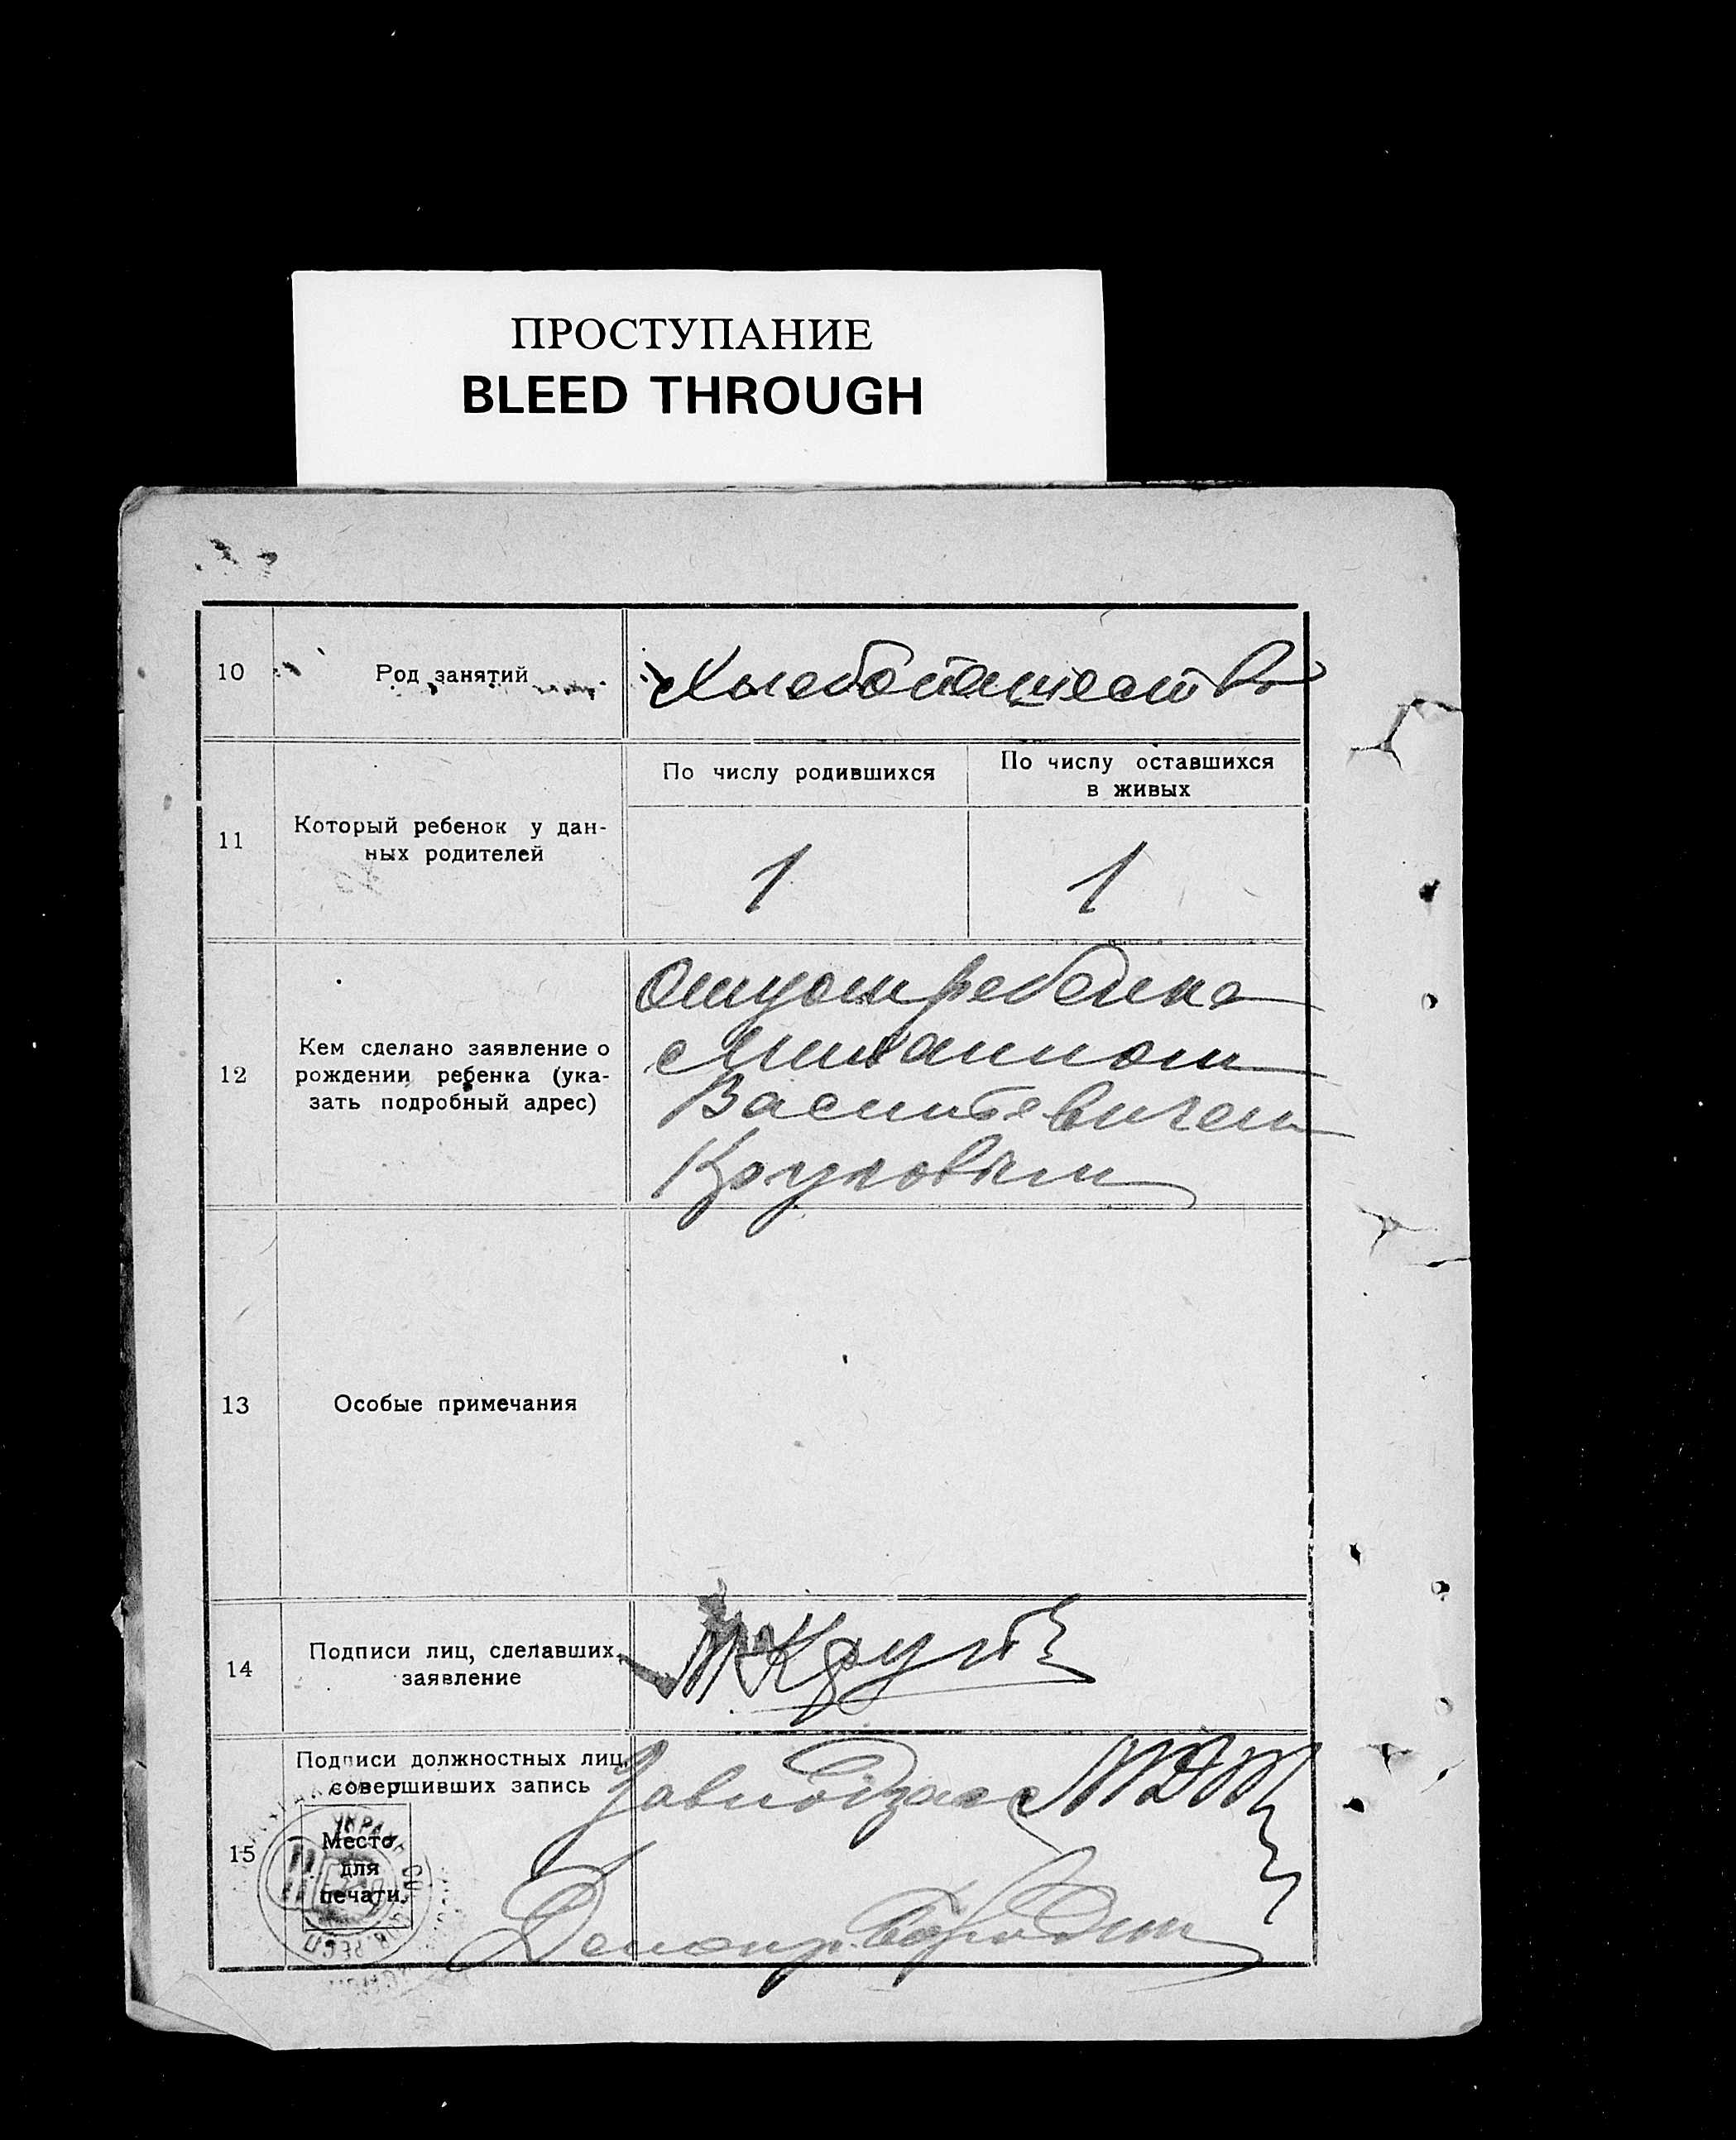 ПРОСТУПАНИЕ
BLEED THROUGH
10 Род занятий Хлебопашество
11 Который ребенок у дан-
ных родителей
По числу родившихся
По числу оставшихся
в живых
1 1
12 Кем сделано заявление о
рождении ребенка (ука-
зать подробный адрес)
Отцом ребенка
Михаилом
Васильевичем
Круговым
13 Особые примечания
14 Подписи лиц, сделавших
заявление
МКруг
15 Подписи должностных лиц,
совершивших запись
Место
для
печати.
Делопр. Бородин